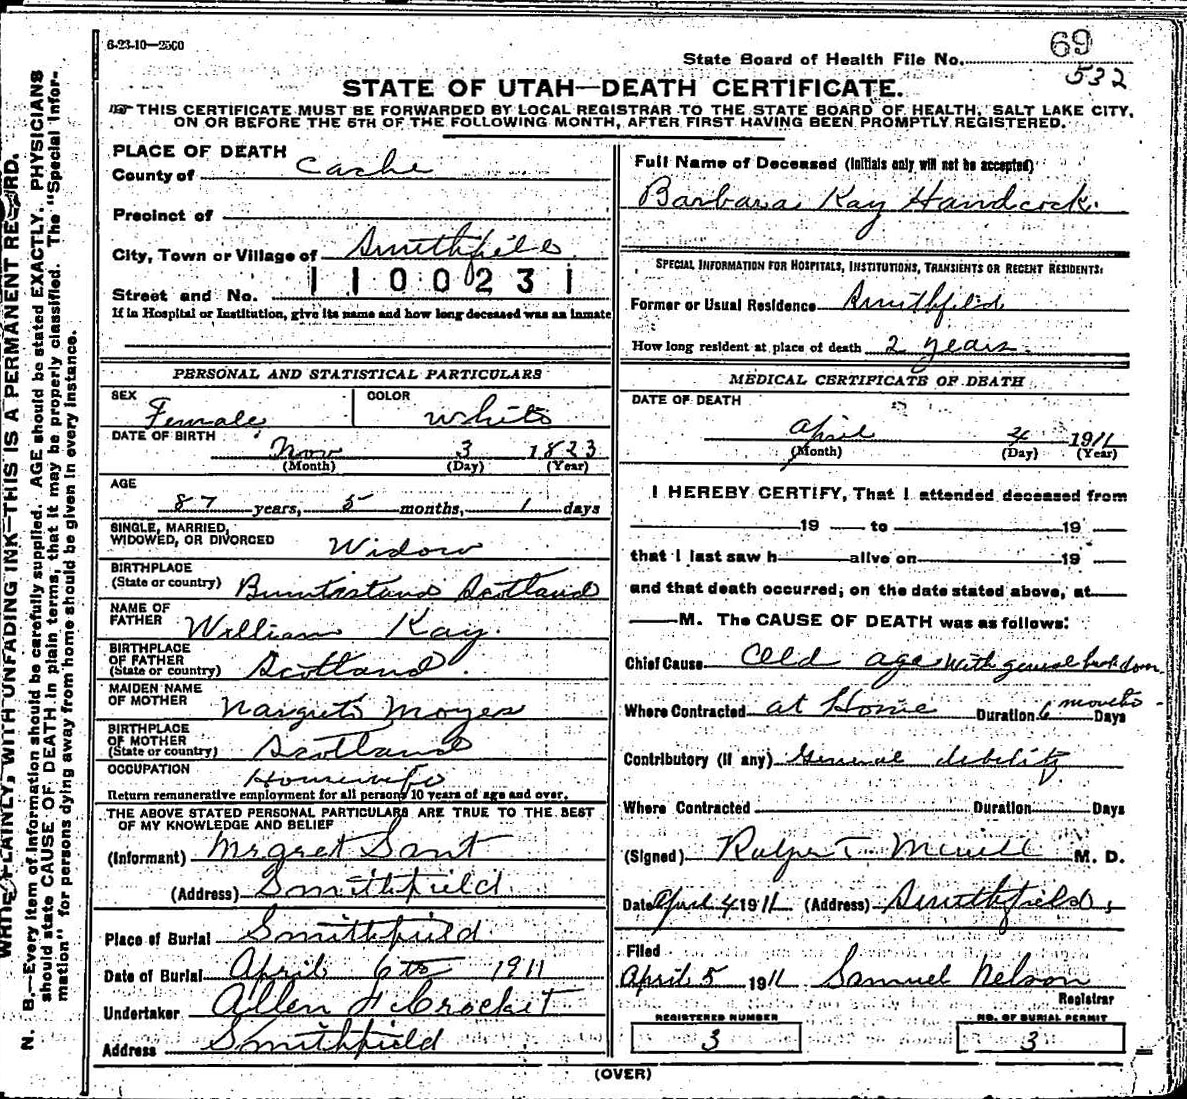 6-23-10—2500
69
State Board of Health File No.
532
STATE OF UTAH—DEATH CERTIFICATE.
THIS CERTIFICATE MUST BE FORWARDED BY LOCAL REGISTRAR TO THE STATE BOARD OF HEALTH, SALT LAKE CITY,
ON OR BEFORE THE 5TH OF THE FOLLOWING MONTH, AFTER FIRST HAVING BEEN PROMPTLY REGISTERED.
PLACE OF DEATH
County of Cache
Precinct of
City, Town or Village of Smithfield
1100231
Street and No.
If in Hospital or Institution, give its name and how long deceased was an inmate
PERSONAL AND STATISTICAL PARTICULARS
SEX Female COLOR White
DATE OF BIRTH
Nov 3 1823
(Month) (Day) (Year)
AGE
87 years, 5 months, 1 days
SINGLE, MARRIED,
WIDOWED, OR DIVORCED Widow
BIRTHPLACE
(State or country) Scotland
NAME OF
FATHER William Kay.
BIRTHPLACE
OF FATHER
(State or country) Scotland
MAIDEN NAME
OF MOTHER Moyes
BIRTHPLACE
OF MOTHER
(State or country) Scotland
OCCUPATION Housewife
Return remunerative employment for all persons 10 years of age and over.
THE ABOVE STATED PERSONAL PARTICULARS ARE TRUE TO THE BEST
OF MY KNOWLEDGE AND BELIEF
(Informant) Mrgret Sant
(Address) Smithfield
Place of Burial Smithfield
Date of Burial April 6th 1911
Undertaker Allen Crockit
Address Smithfield
Full Name of Deceased (Initials only will not be accepted)
Barbara Kay Handcock.
SPECIAL INFORMATION FOR HOSPITALS, INSTITUTIONS, TRANSIENTS OR RECENT RESIDENTS:
Former or Usual Residence Smithfield
How long resident at place of death 2 years.
MEDICAL CERTIFICATE OF DEATH
DATE OF DEATH
April 4 1911
(Month) (Day) (Year)
I HEREBY CERTIFY, That I attended deceased from
19 to 19
that I last saw h alive on 19
and that death occurred, on the date stated above, at
M. The CAUSE OF DEATH was as follows:
Chief Cause Old age with general break down
Where Contracted at Home Duration 6 months Days
Contributory (if any) General debility
Where Contracted Duration Days
(Signed) T. Merrill M. D.
Date April 4 1911 (Address) Smithfield,
Filed
April 5 1911 Samuel Nelson
Registrar
REGISTERED NUMBER
3
NO. OF BURIAL PERMIT
3
(OVER)
WRITE PLAINLY, WITH UNFADING INK—THIS IS A PERMANENT RECORD.
N. B.—Every item of information should be carefully supplied. AGE should be stated EXACTLY. PHYSICIANS
should state CAUSE OF DEATH in plain terms, that it may be properly classified. The "Special Infor-
mation" for persons dying away from home should be given in every instance.